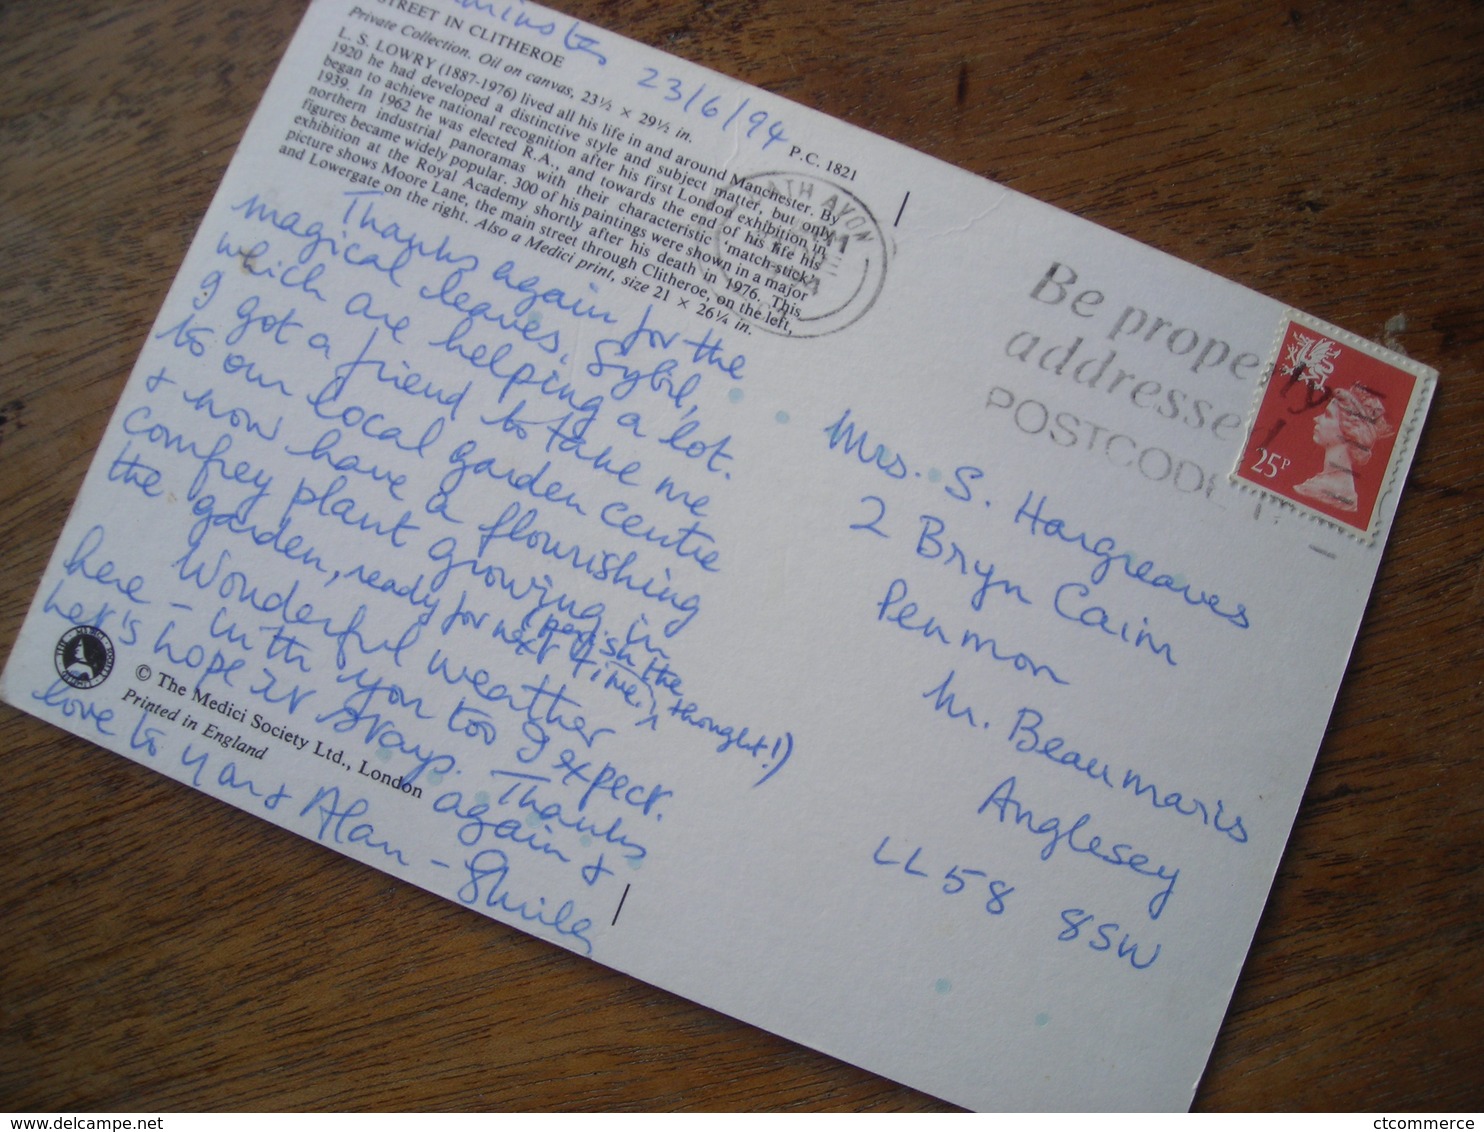 23/6/94
STREET IN CLITHEROE
Private Collection. Oil on canvas, 23½ × 29½ in.
P.C. 1821
L. S. LOWRY (1887-1976) lived all his life in and around Manchester. By
1920 he had developed a distinctive style and subject matter, but only
began to achieve national recognition after his first London exhibition in
1939. In 1962 he was elected R.A., and towards the end of his life his
northern industrial panoramas with their characteristic 'match-stick'
figures became widely popular. 300 of his paintings were shown in a major
exhibition at the Royal Academy shortly after his death in 1976. This
picture shows Moore Lane, the main street through Clitheroe, on the left,
and Lowergate on the right. Also a Medici print, size 21 × 26¼ in.
Thanks again for the
magical leaves, Sybil,
which are helping a lot.
I got a friend to take me
to our local garden centre
& now have a flourishing
comfrey plant growing in
the garden, ready for next time.
(perish the thought!)
Wonderful weather
here – in the you too I expect.
let's hope it stays. Thanks
again &
love to you & Alan – Sheila
© The Medici Society Ltd., London
Printed in England
THE MEDICI SOCIETY
AVON
Be properly
addressed
POSTCODE
25P
Mrs. S. Hargreaves
2 Bryn Cain
Penmon
Nr. Beaumaris
Anglesey
LL58 8SW
ctcommerce